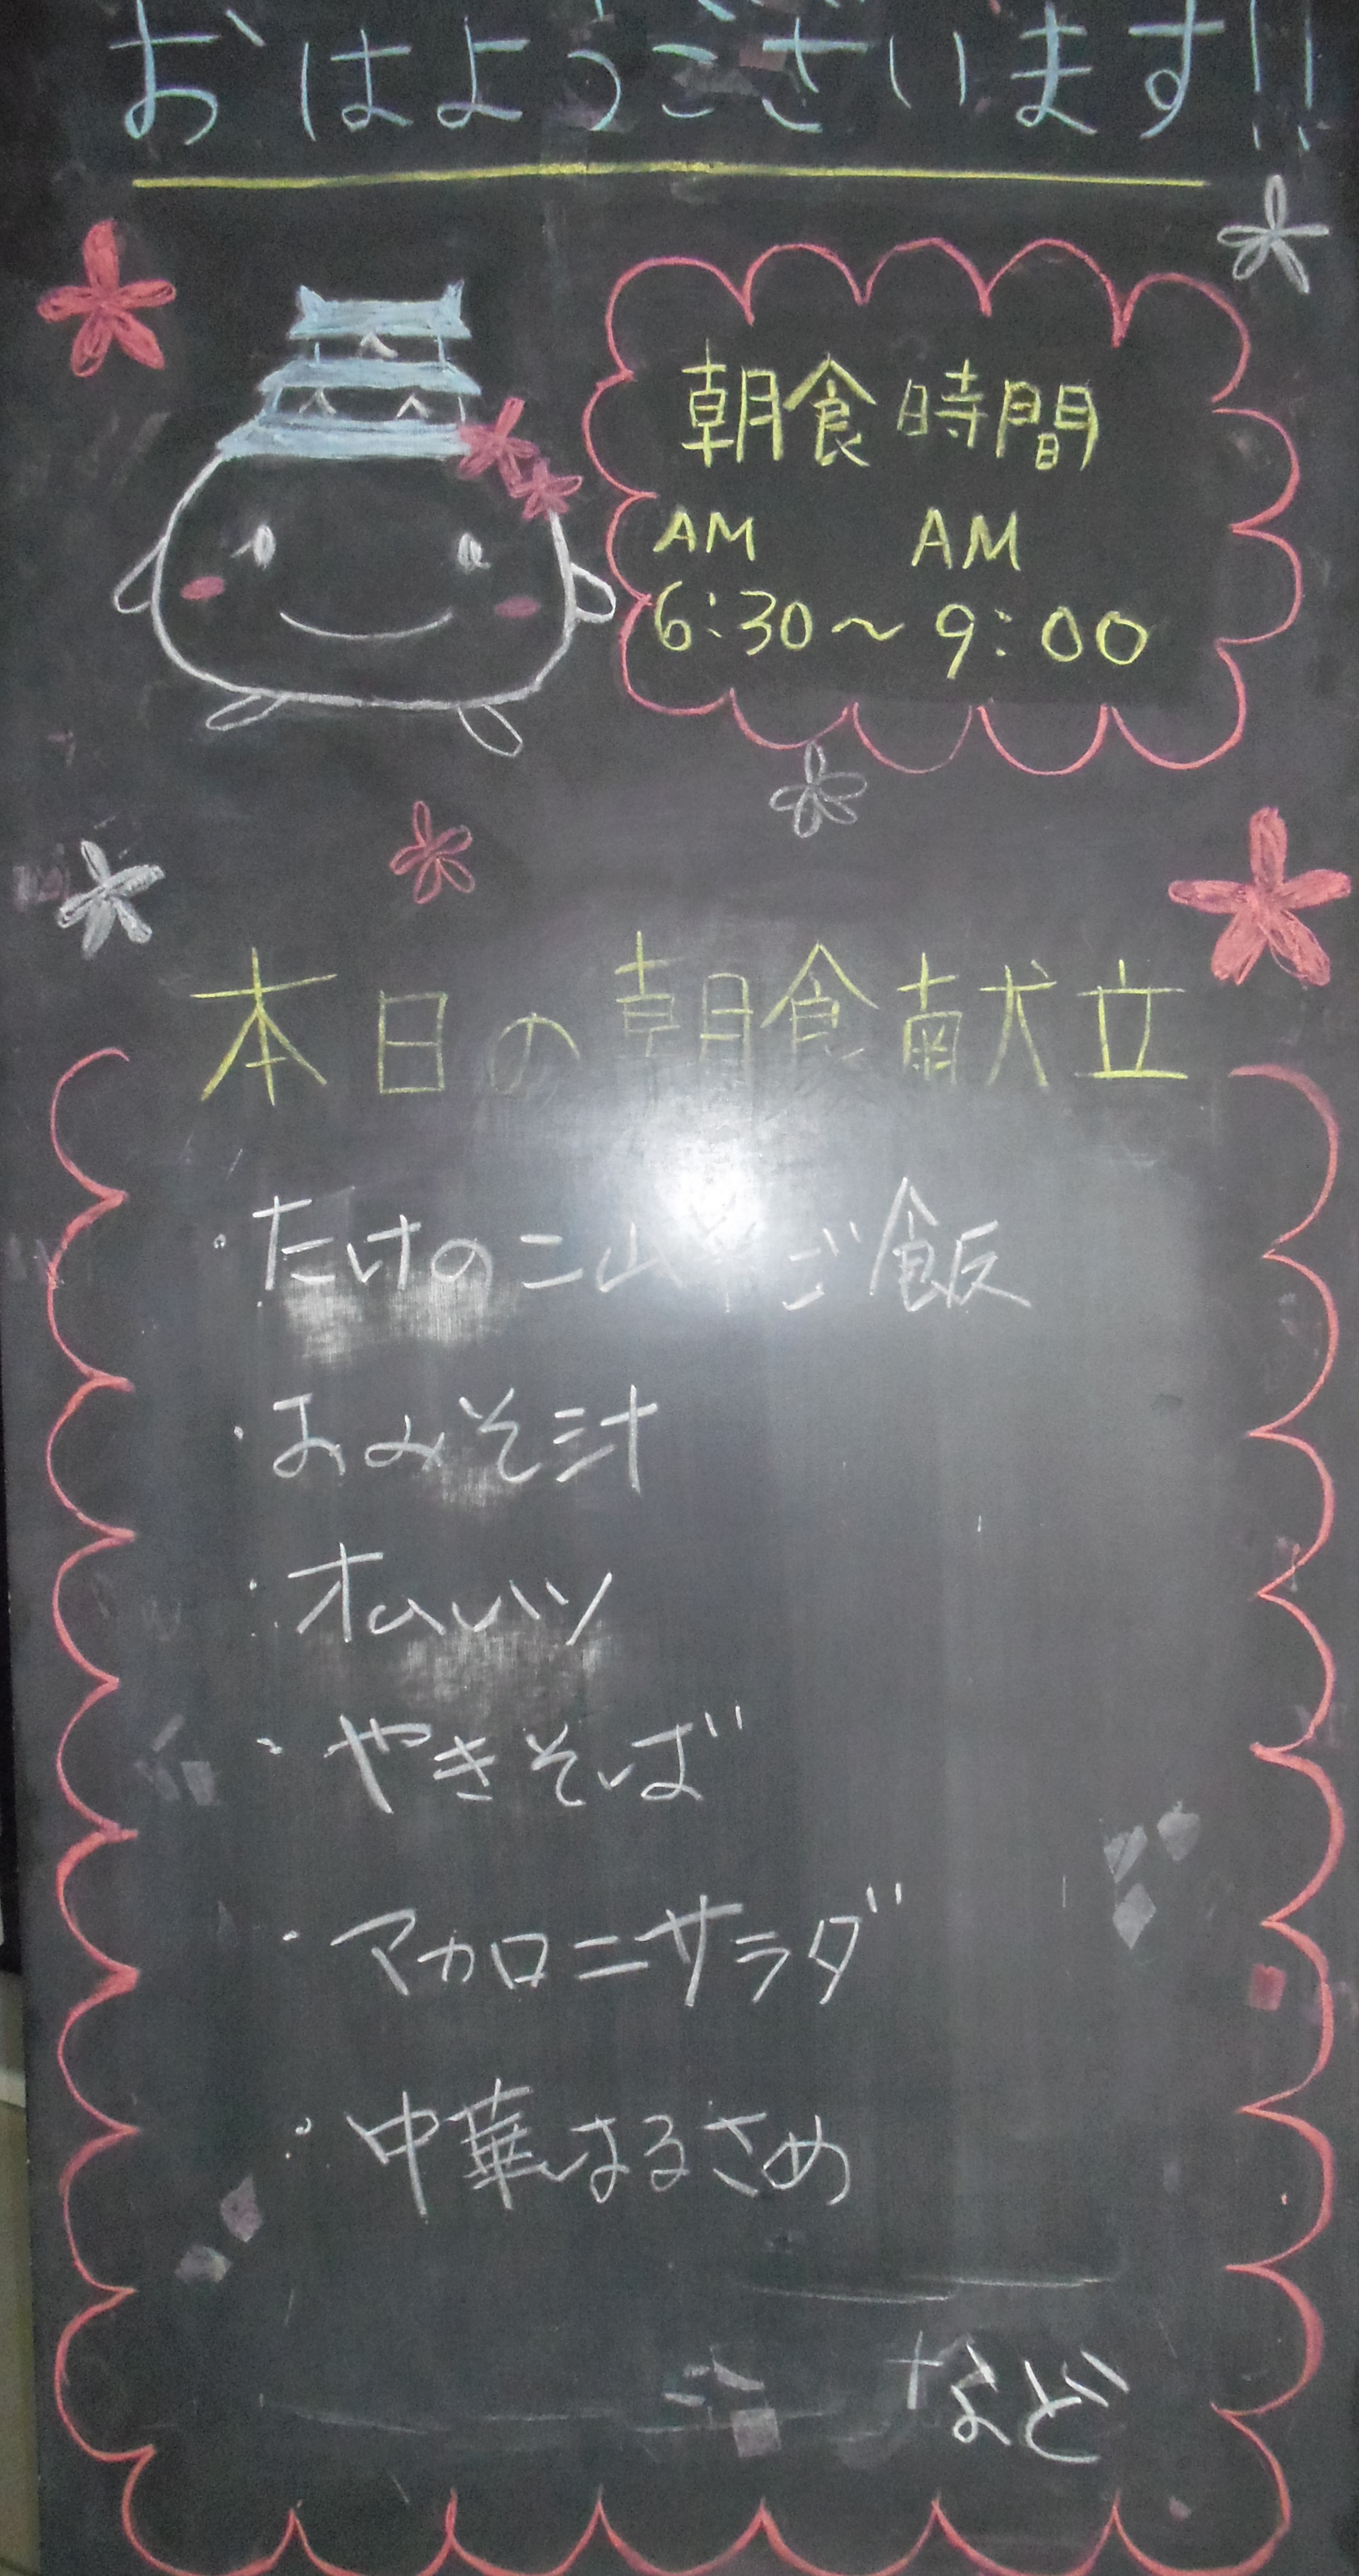 おはようございます!!
朝食時間
AM AM
6:30〜9:00
本日の朝食献立
・たけのこ山菜ご飯
・おみそ汁
・オムレツ
・やきそば
・マカロニサラダ
・中華はるさめ
など